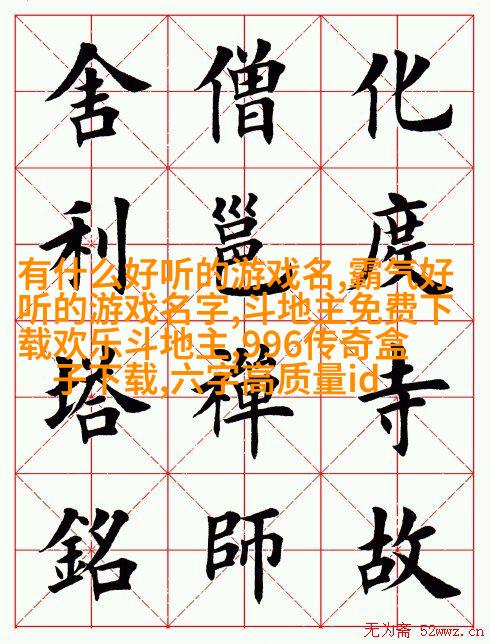 化度寺故
僧邕禪師
舍利塔銘
有什么好听的游戏名,霸气好
听的游戏名字,斗地主免费下
载欢乐斗地主,996传奇盒
子下载,六字高质量id
无为斋 52wwz.cn